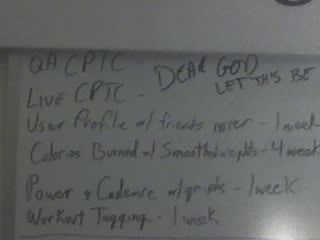 QA CPTC - DEAR GOD
LET THIS BE
LIVE CPTC -
User Profile w/ friends - 1 week
Calories Burned w/ Smoothed - 4 week
Power & Cadence w/ graphs - 1 week
Workout Tagging - 1 week